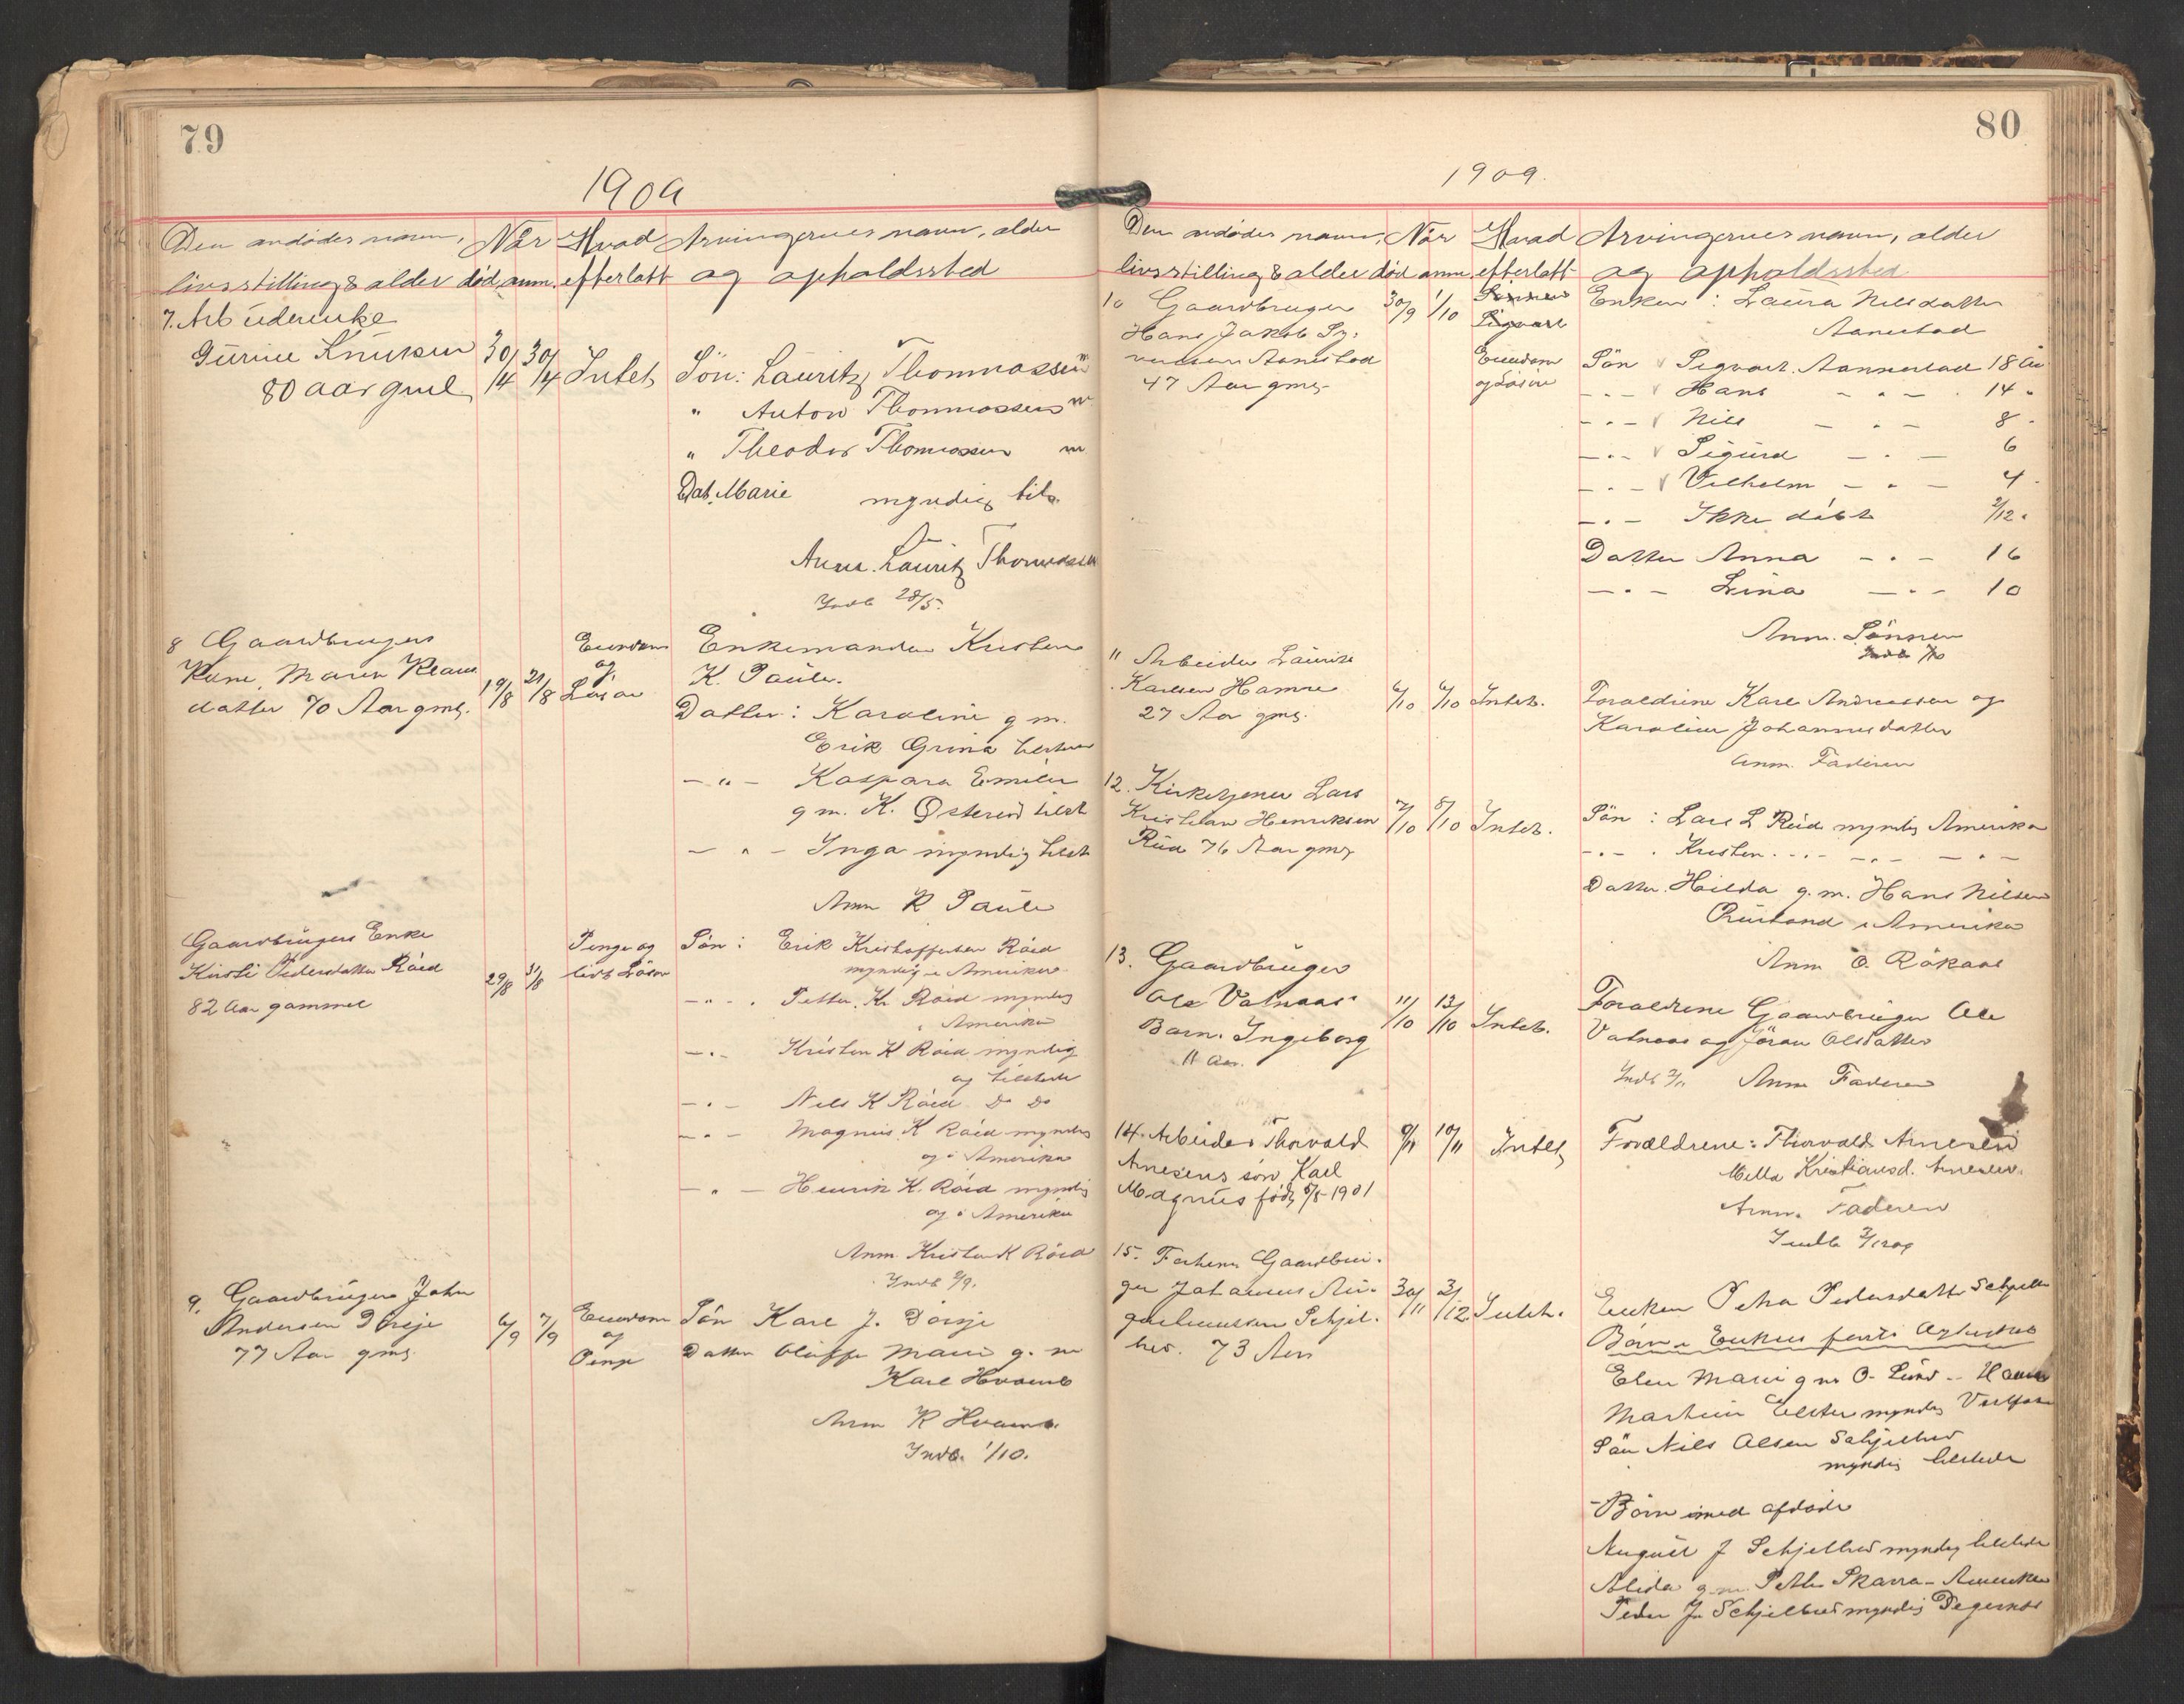 79
1909
Den avdødes navn, Når Hvad Arvingernes navn, alder
livsstilling & alder død, anm. efterlatt og opholdssted
7. Arbeiderenke
Gurine Knutsen 30/4 30/4 Intet, Søn: Lauritz Thommassen m
80 aar gml. " Anton Thommassen m
" Theodor Thomassen m
Dat. Marie myndig tils.
Anm. Lauritz Thomassen
Indb 28/5.
8 Gaardbrugers Eiendom Enkemanden Kristen
Kone, Maren Klaus og K. Paule.
datter 70 Aar gml. 19/8 21/8 Løsøre Datter: Karoline g m.
Erik Grina tilsted
- " - Kaspara Emilie
g m. K. Østerød tilst
- " - Inga myndig tilst
Anm K Paule
Gaardbrugers Enke Penge og Søn: Erik Kristoffersen Røed
Kirsti Pedersdatter Røed 29/8 31/8 lidt Løsøre myndig i Amerika
82 Aar gammel - " - Petter. Kr. Røed myndig
i Amerika
- " - Kristen K Røed myndig
og tilstede
- " - Nils K Røed Do Do
- " - Magnus K Røed myndig
og i Amerika
- " - Henrik K. Røed myndig
og i Amerika
Anm. Kristen K Røed
Indb 2/9.
9. Gaardbruger John
Andersen Dørsje 6/9 7/9 Eiendom Søn Karl J. Dørsje
77 Aar gml og Penge Datter Oluffe Marie g. m
Karl Hvamb
Anm K Hvamb.
Indb. 1/10.
80
1909.
Den avdødes navn, Når Hvad Arvingernes navn, alder
livsstilling & alder død anm. efterlatt og opholdssted
10 Gaardbruger 30/9 1/10 Sønnen Sigvart Enken: Laura Nilsdatter
Hans Jakob Aanestad
Aanestad Eiendom Søn Sigvart Aannestad 18 Aar
47 Aar gml. og Løsøre - " - Hans - " - 14 "
- " - Nils - " - 8 "
- " - Sigurd - " - 6
- " - Vilhelm - " - 4
- " - Ikke døbt 2/12 "
Datter Anna - " - 16
- " - Lina - " - 10
Anm. Sønnen
11 Arbeider Lauritz
Karlsen Hamre 6/10 6/10 Intet. Forældrene Karl Andreassen og
27 Aar gml. Karoline Johannesdatter
Anm. Faderen
12. Kirketjener Lars
Kristian Henriksen 7/10 8/10 Intet. Søn: Lars L Rud myndig Amerika
Rud 76 Aar gml - " - Kristen - " - - " - - " -
Datter Hilda g. m. Hans Nilsen
i Amerika
Anm O. Råkaas
13. Gaardbruger
Ole Vatnaas' 11/10 13/10 Intet. Forældrene Gaardbruger Ole
Barn. Ingeborg Vatnaas og Jøran Olsdatter
11 Aar. Indb 2/11 Anm Faderen
14. Arbeider Thorvald 9/11 10/11 Intet, Forældrene: Thorvald Arnesen
Arnesens søn, Karl Mella Kristiansd. Arnesen.
Magnus født 5/5-1901 Anm. Faderen
15. Forhenv Gaardbru-
ger Johannes Au- 30/11 2/12 Intet. Enken Petra Pedersdatter Schjelbred
gustinussen Schjel- Børn i Enkens første Ægteskab
bred. 73 Aar Elen Marie g m O. Lund
Martin Olsen myndig
Søn Nils Olsen Schjelbred
myndig tilstede
- Børn med afdøde
August J Schjelbred myndig tilstede
Alida g.m. Petter Skarra - Amerika
Peder J Schjelbred myndig Degernes